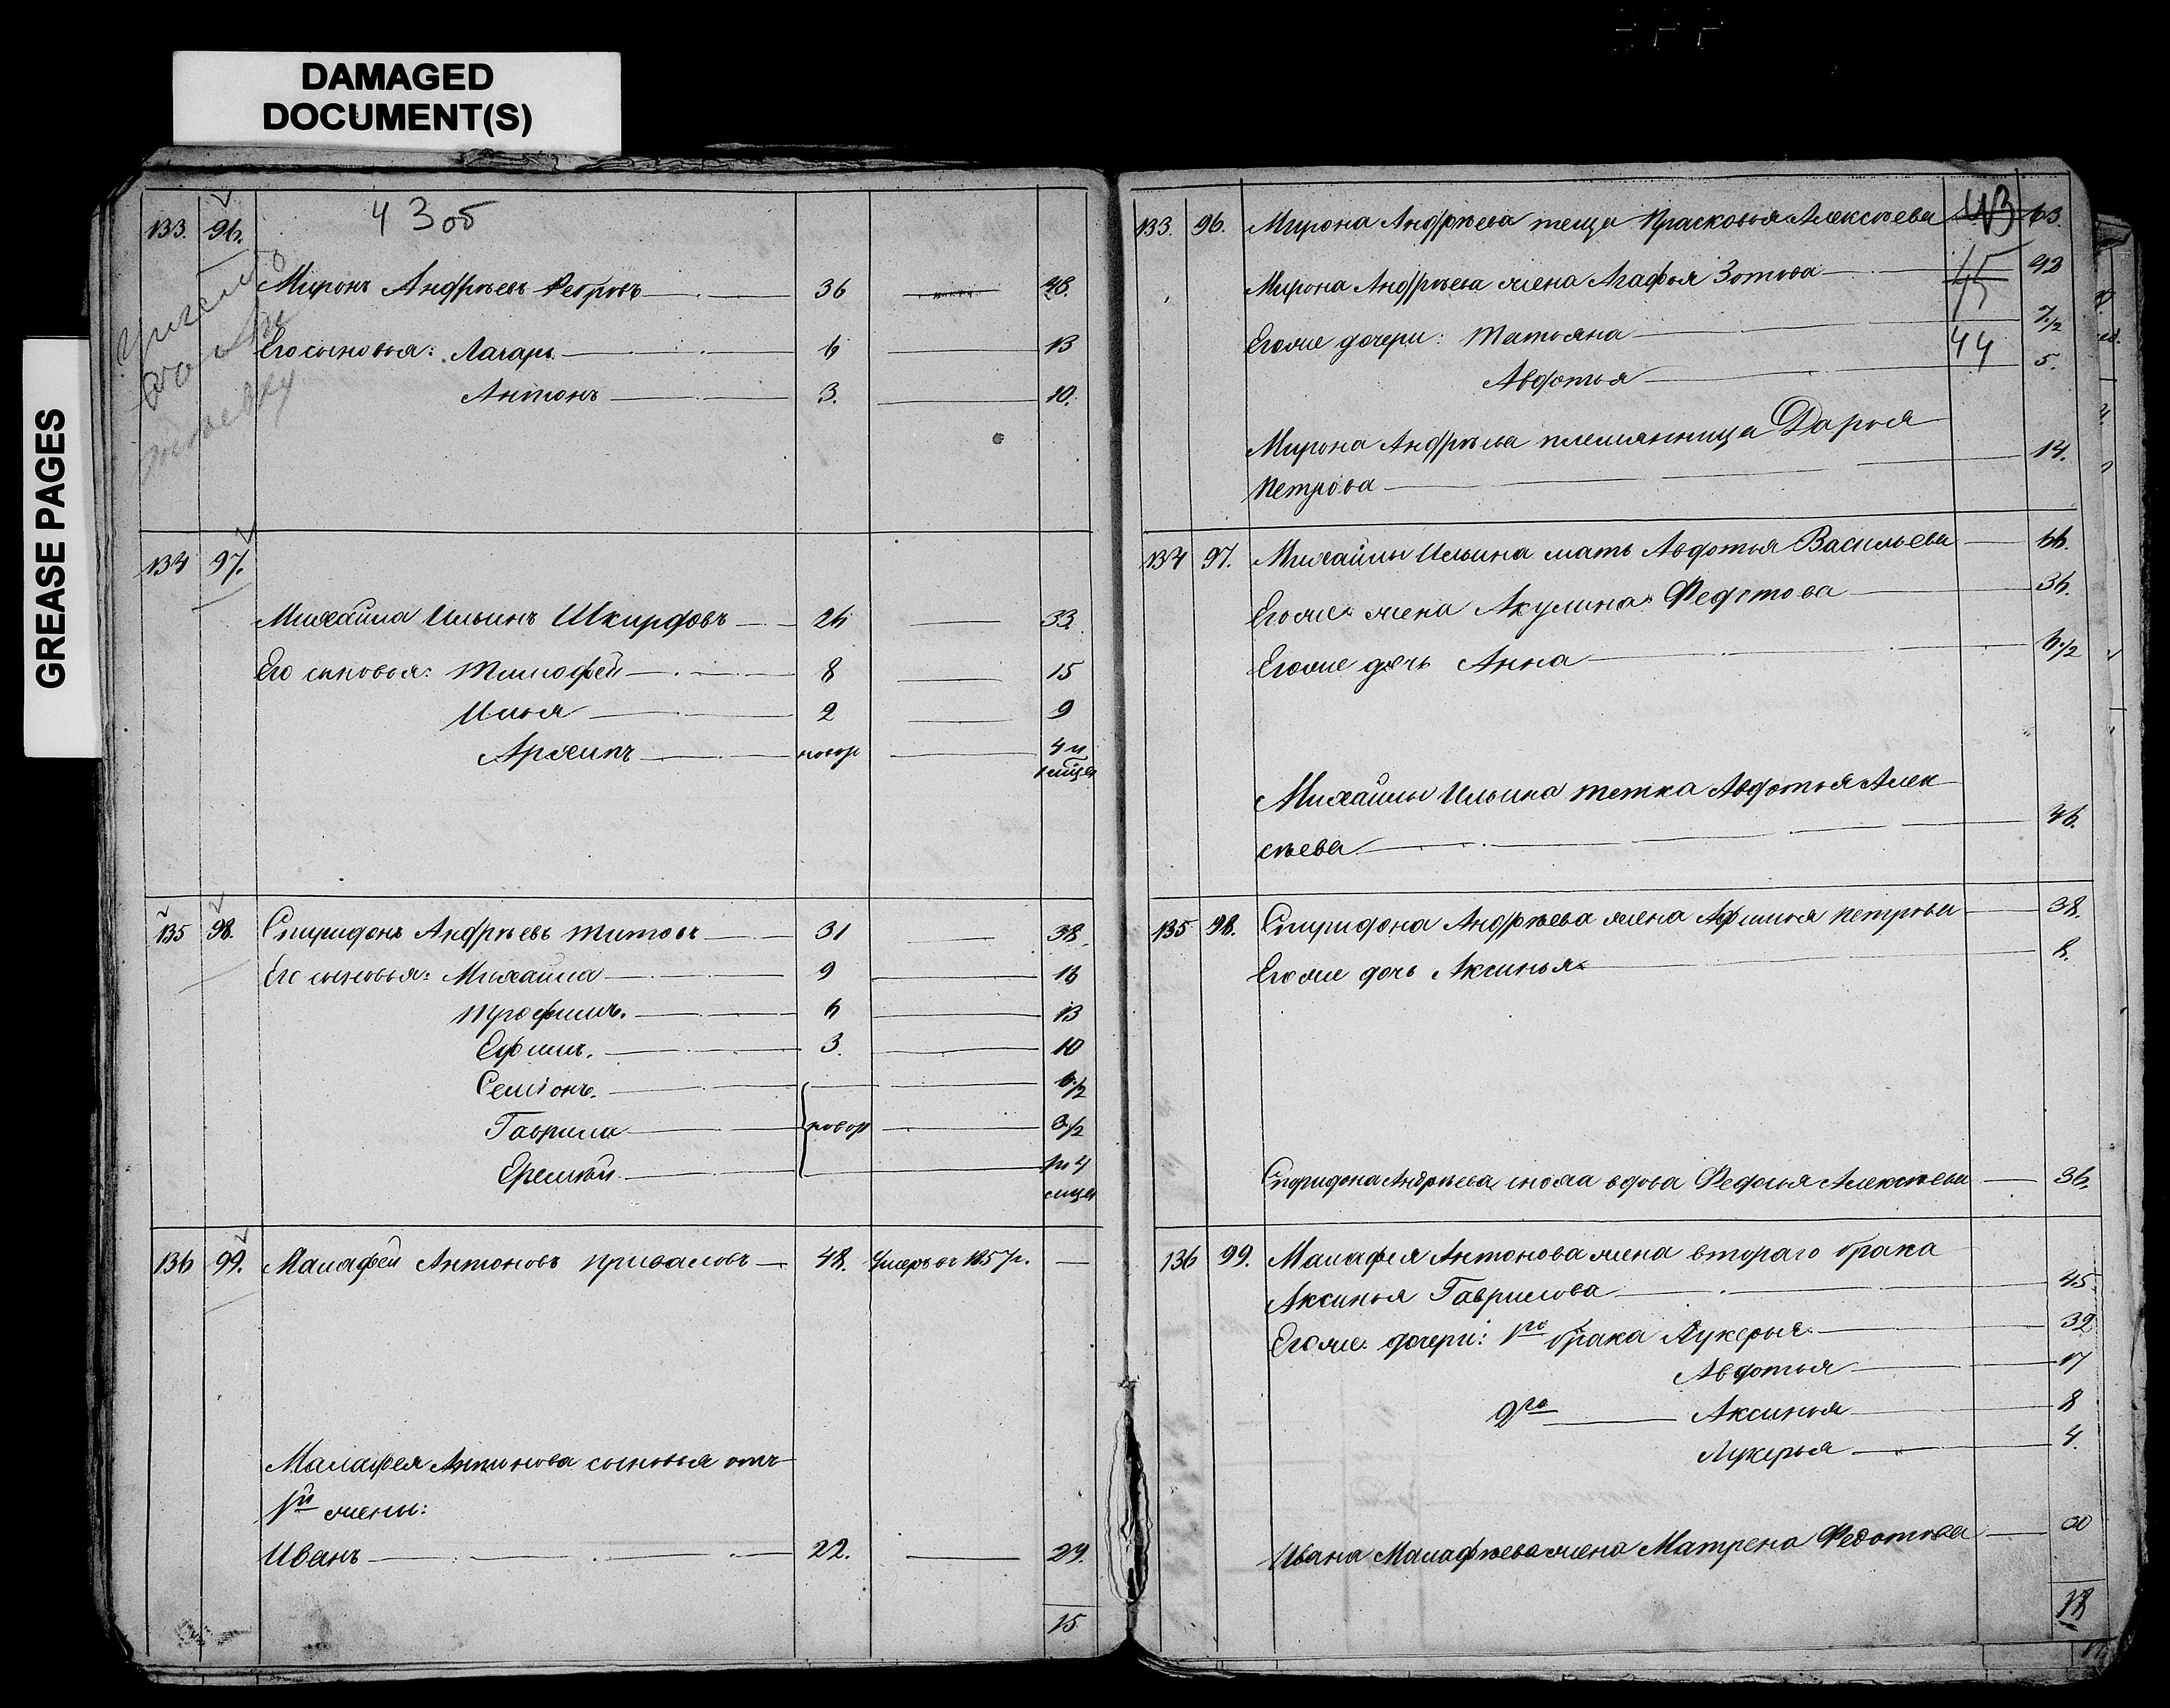 DAMAGED
DOCUMENT(S)
GREASE PAGES
43об
133. 96.
Миронъ Андреевъ Фетровъ 36 48.
Его сыновья: Лазарь 6 13
Антонъ 3. 10.
134 97.
Михайла Ильинъ Шкирдовъ 26 33.
Его сыновья: Тимофей 8 15
Илья 2 9
Архипъ новор 4 и
135 98. Спиридонъ Андреевъ Титовъ 31 38.
Его сыновья: Михайла 9 16
Трофимъ. 6 13
Ефимъ. 3. 10
Семіонъ. 6 1/2
Гаврила новор 3 1/2
Еремѣй
136 99. Малафей Антоновъ Приваловъ 48. Умеръ въ 1857 г.
Малафея Антонова сыновья отъ
1й жены:
Иванъ 22. 29.
15
133. 96. Мирона Андрѣева теща Прасковья Алексѣева 43 63.
Мирона Андрѣева жена Агафья Зотова 45 42
Его же дочери: Татьяна 44 7 1/2
Авдотья 5.
Мирона Андрѣева племянница Дарья
Петрова 14.
134 97. Михайлы Ильина мать Авдотья Васильева 66.
Его же жена Акулина Федотова 36.
Его же дочь Анна 6 1/2
Михайлы Ильина тетка Авдотья Алек
сѣева 46.
135 98. Спиридона Андрѣева жена Афимья Петрова 38.
Его же дочь Аксинья 8.
Спиридона Андрѣева сноха вдова Федосья Алексѣева 36.
136 99. Малафея Антонова жена втораго брака
Аксинья Гаврилова 45.
Его же дочери: 1го брака Лукерья 32
Авдотья 17
2го Аксинья 8
Лукерья 4.
Ивана Малафѣева жена Матрена Федотова 30
18